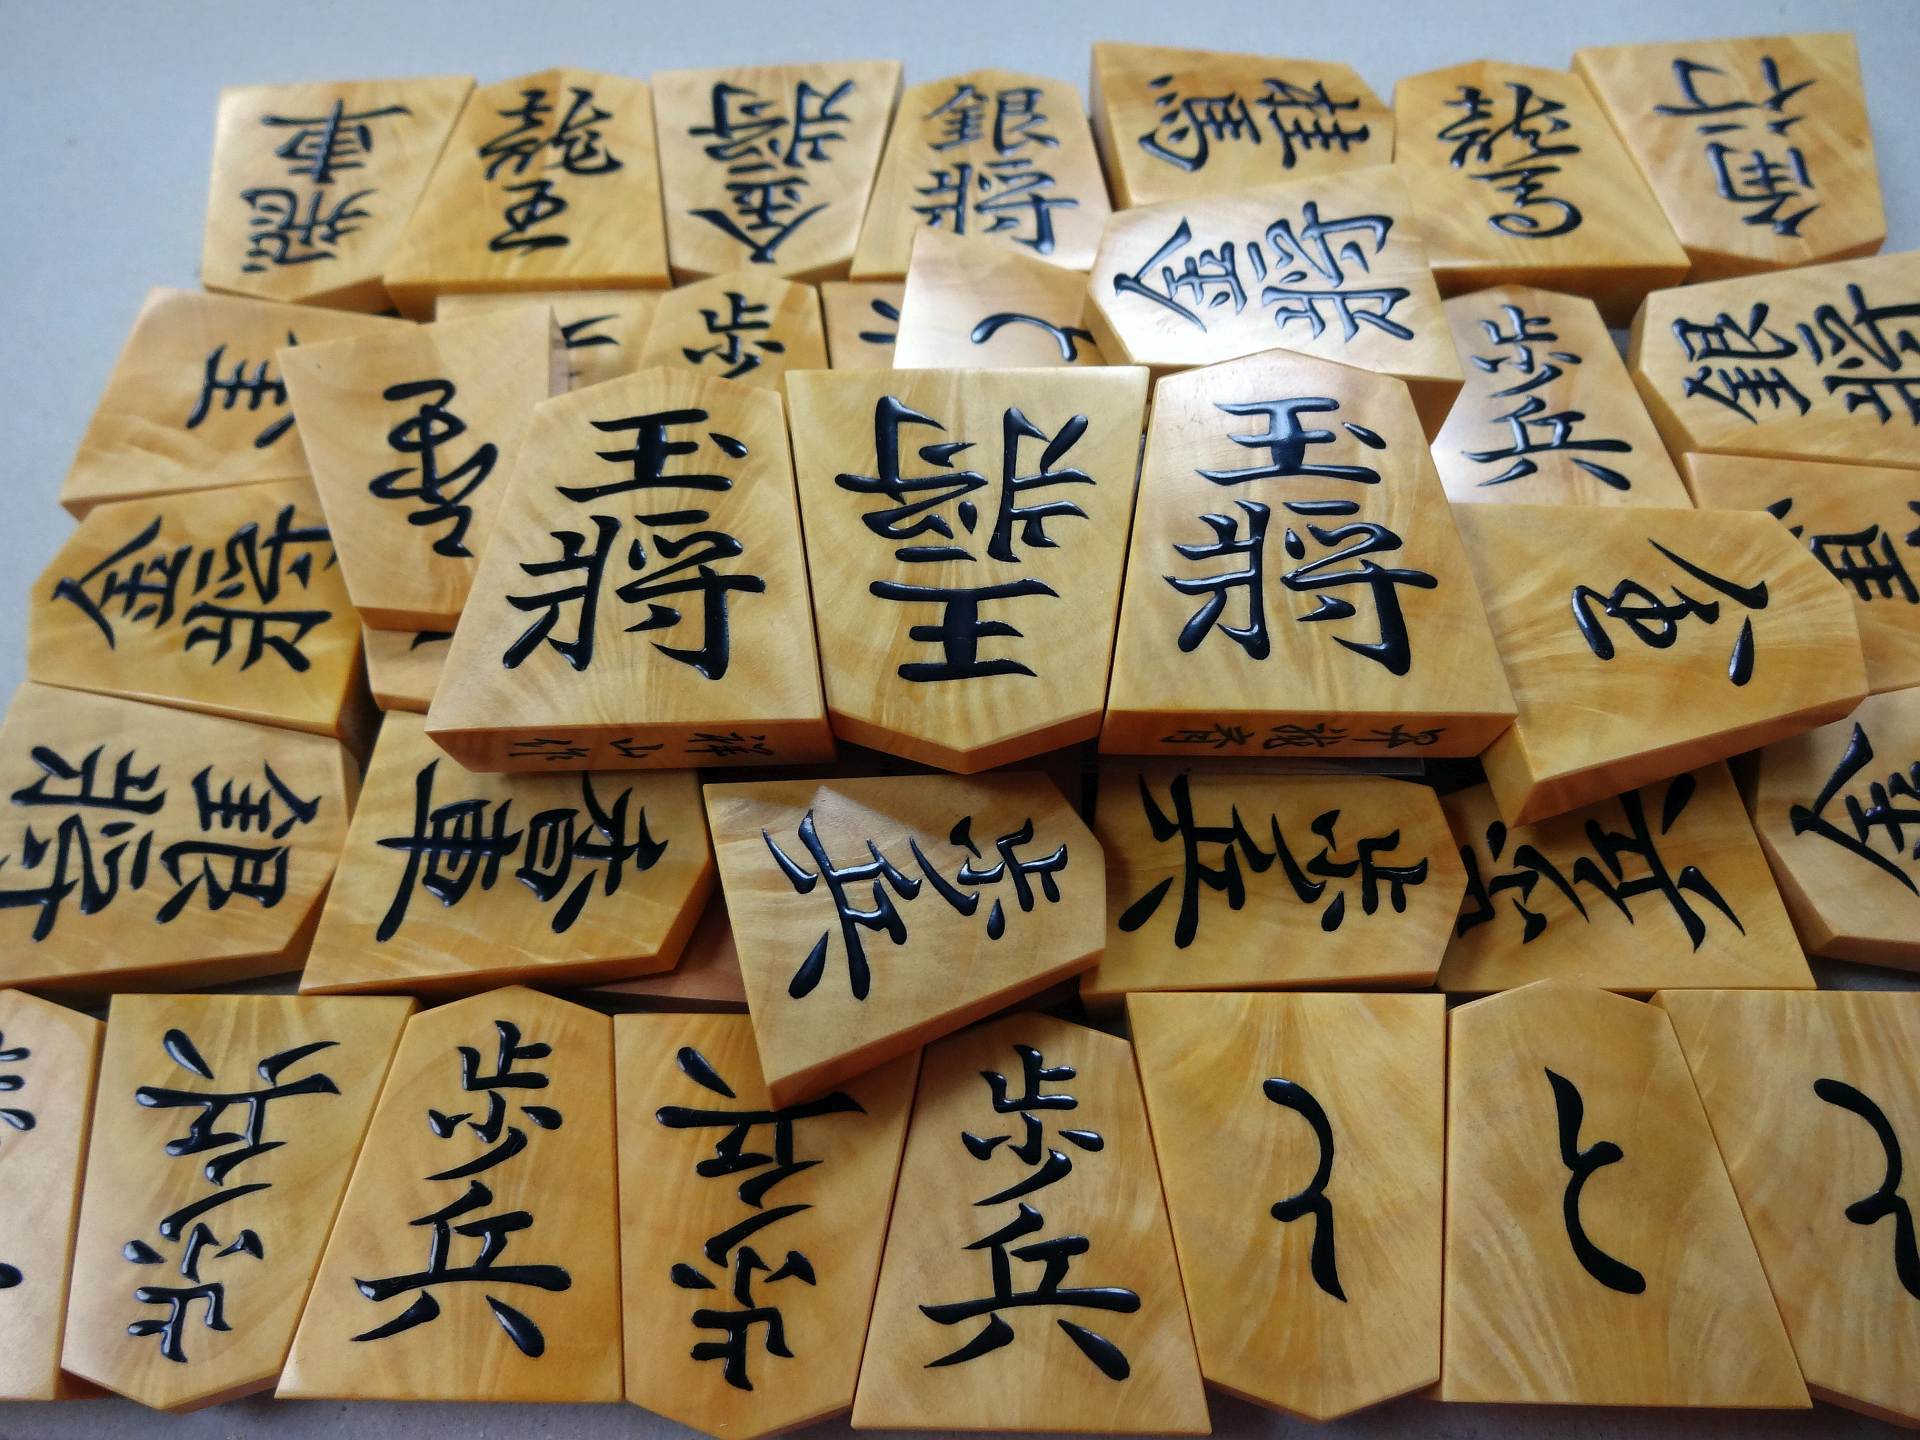 飛車
龍王
金将
銀将
桂馬
龍馬
角行
金将
歩
と
歩兵
銀将
金将
玉将
王将
玉将
金
祥山作
昇龍書
銀将
香車
歩兵
歩兵
歩兵
金
歩兵
歩兵
歩兵
歩兵
と
と
と